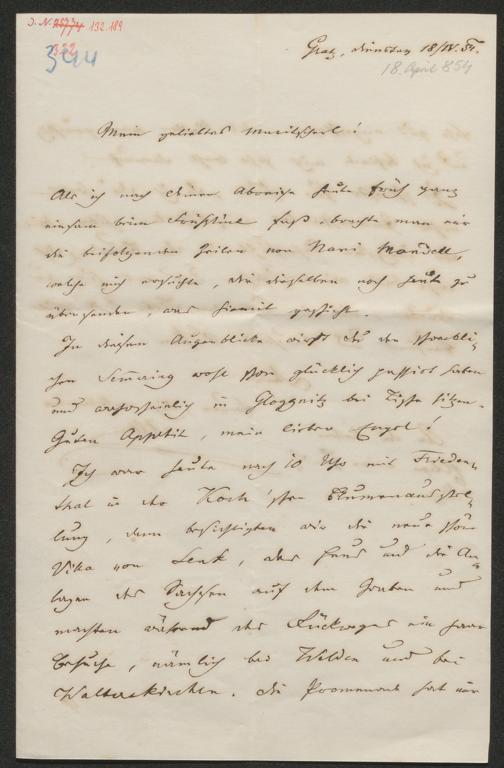 J. N. 132.189
344
Gratz, Dienstag 18/IV. 54.
18. April 854
Mein geliebtes
Als ich nach deiner Abreise heute früh ganz
einsam beim Frühstück saß, brachte man mir
die beifolgenden Zeilen von Nani Mandell,
welche mich ersuchte, dir dieselben noch heute zu
übersenden, was hiemit geschieht.
In diesem Augenblicke wirst du den schreckli-
chen Semring wohl schon glücklich passirt haben
und wahrscheinlich in Gloggnitz bei Tische sitzen.
Guten Appetit, mein lieber Engel!
Ich war heute nach 10 Uhr mit Frieden-
thal in der Koch'schen Blumenausstel-
lung, dann besichtigten wir die neue schöne
von Lenk, das und die An-
lagen des auf dem Graben und
machten während des Rückweges ein paar
Besuche, nämlich bei Welden und bei
Walterskirchen. Die Promenade hat mir